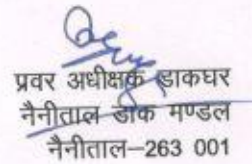 प्रवर अधीक्षक डाकघर
नैनीताल डाक मण्डल
नैनीताल–263 001